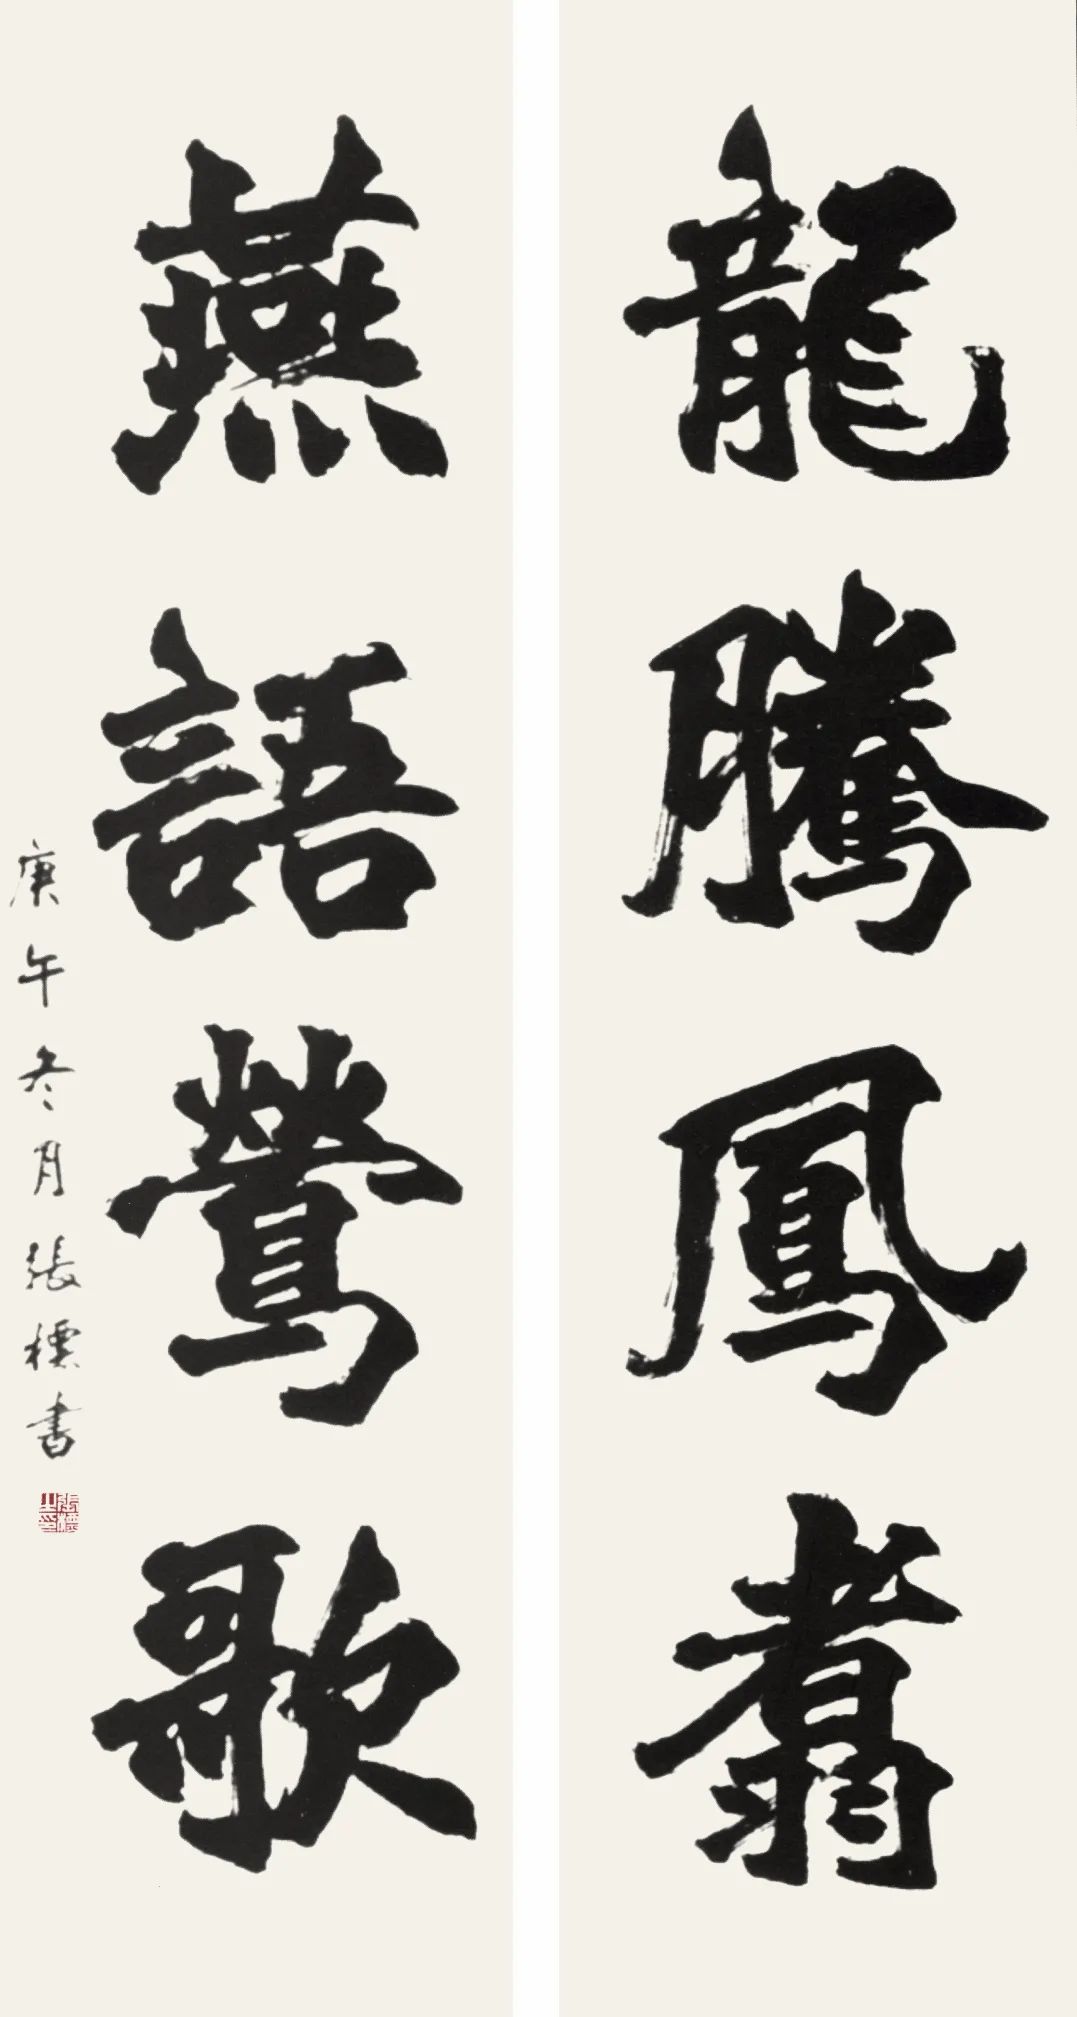 龍騰鳳翥
燕語鶯歌
庚午冬月張標書
張標之印